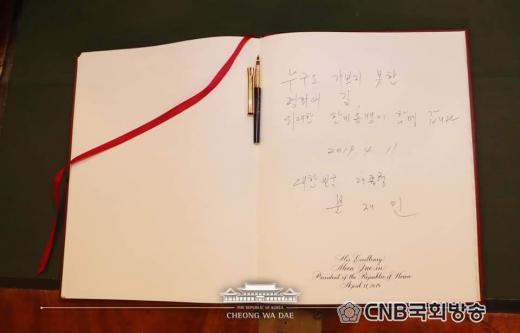 누구도 가보지 못한
평화의 길,
위대한 한미동맹이 함께 갑니다
2019. 4. 11
대한민국 대통령
문재인
His Excellency
Moon Jae-in
President of the Republic of Korea
April 11, 2019
THE REPUBLIC OF KOREA
CHEONG WA DAE
CNB국회방송